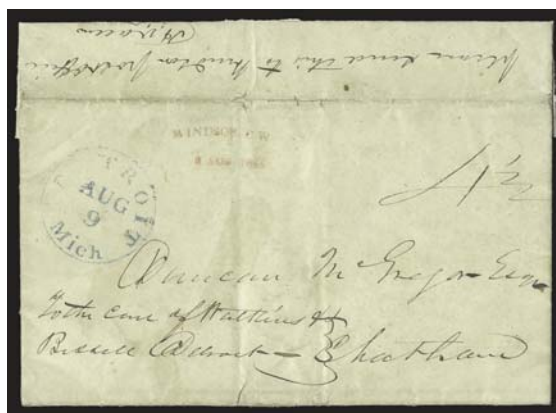 please send this to Windsor post office
WINDSOR C.W
8 AUG
DETROIT
AUG
9
Mich
4½
Duncan McGregor Esqr
To the care of Watkins &
Bissell Detroit — Chatham